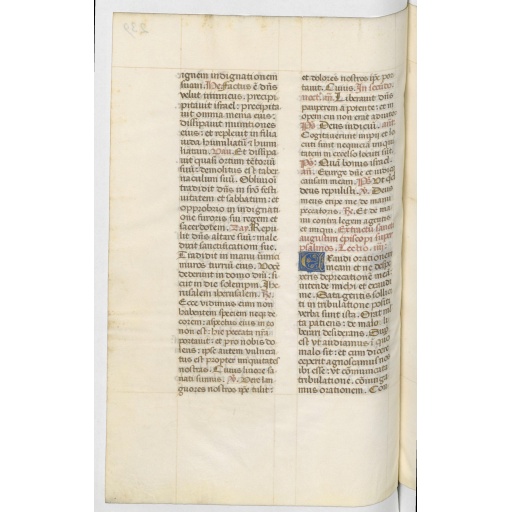 ignem indignationem
suam. He. Factus ē dn̄s
velut inimicus. precipi
pitauit israel: precipita
uit omnia menia eius:
dissipauit munitiones
eius: et repleuit in filia
iuda humiliatū ⁊ humi
liatam. Vau. Et dissipa
uit quasi ortum tētoriū
suū: demolitus est taber
naculum suū. Obliuioī
tradidit dn̄s in syō festi
uitatem et sabbatum: et
opprobrio in indignati
one furoris sui regem et
sacerdotem. Zay. Repu
lit dn̄s altare suū: male
dixit sanctificationi sue.
Tradidit in manu inimici
muros turriū eius. Vocē
dederunt in domo dn̄i: si
cut in die solempni. Ihe
rusalem iherusalem. R.
Ecce vidimus eum non
habentem speciem neqȝ de
corem: aspectus eius in eo
non est: hic peccata nr̄a
portauit: et pro nobis do
lens: ipse autem vulnera
tus est propter iniquitates
nostras. Cuius liuore sa
nati sumus. V. Vere lan
guores nostros ipe tulit:
et dolores nostros ipe por
tauit. Cuius. In secūdo
noct. añ. Liberauit dn̄s
pauperem a potente: et in
opem cui non erat adiutor
Ps. Deus iudiciū. añ.
Cogitauerunt impii et lo
cuti sunt nequiciā iniqui
tatem in excelso locuti sūt.
Ps. Quā bonus israel.
añ. Exurge dn̄e et iudica
causam meam. Ps. Vt qȝ
deus repulisti. V. Deus
meus eripe me de manu
peccatoris. R. Et de ma
nu contra legem agentis
et iniqui. Ex tractatu sancti
augustini episcopi super
psalmos. Lectio. iiij.
Exaudi orationem
meam et ne despe
xeris deprecationē meā:
intende michi et exaudi
me. Satagentis sollici
ti in tribulatione positi
verba sunt ista. Orat mul
ta patiens: de malo li
berari desiderans. Sup
est vt audiamus ī quo
malo sit: et cum dicere
ceperit agnoscamus nos
ibi esse: vt cōmunicata
tribulatione. cōiunga
mus orationem. Con